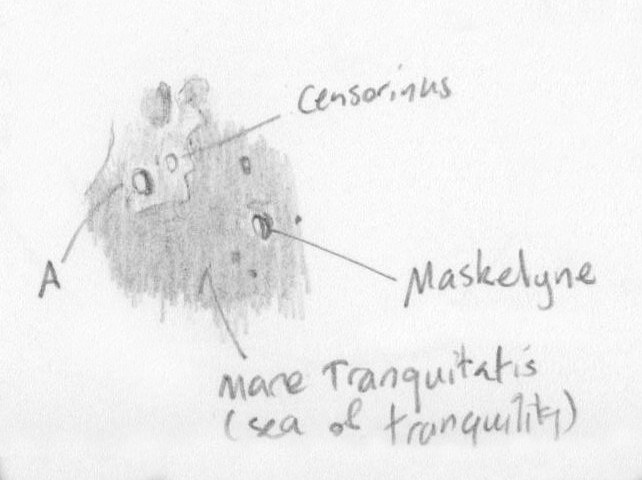 Censorinus
A
Maskelyne
Mare Tranquitatis
(sea of tranquility)